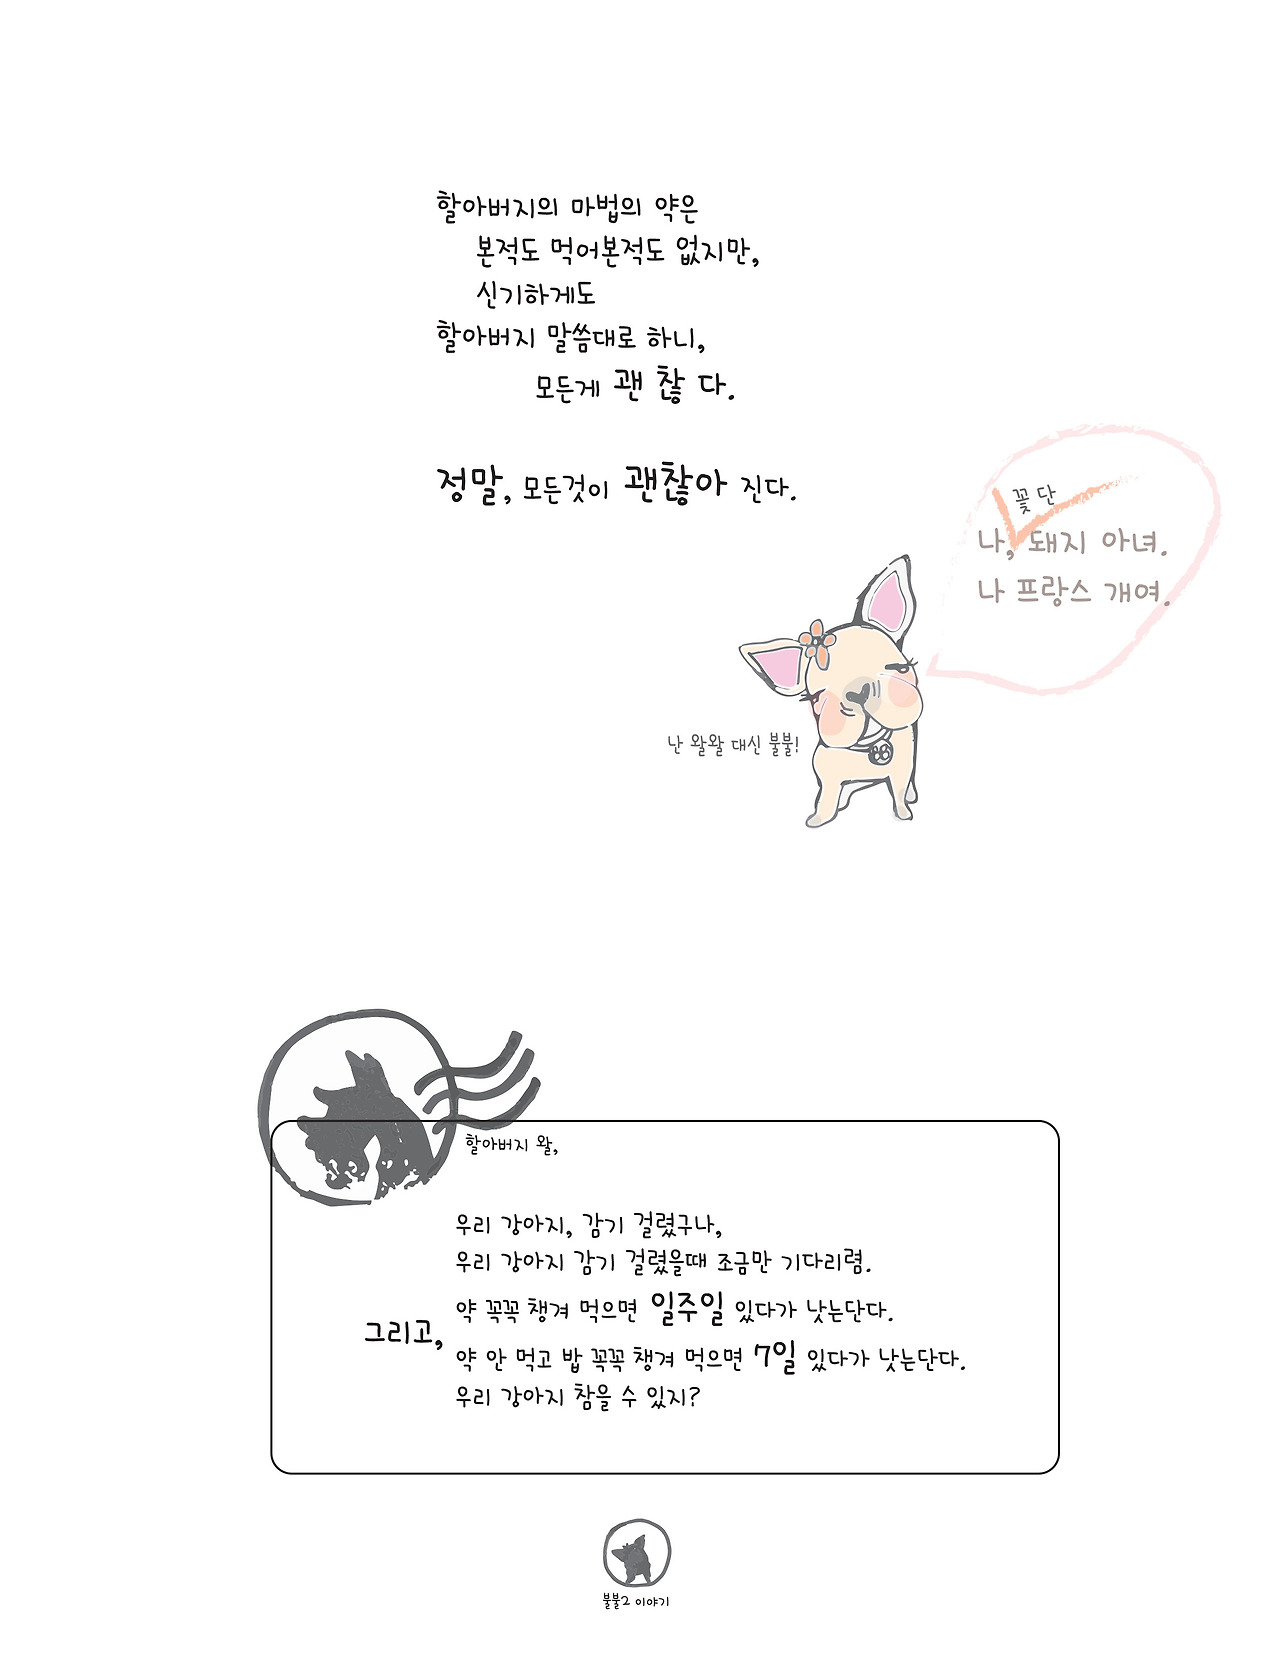 할아버지의 마법의 약은
본적도 먹어본적도 없지만,
신기하게도
할아버지 말씀대로 하니,
모든게 괜 찮 다.
정말, 모든것이 괜찮아 진다.
꽃 단
나, 돼지 아녀.
나 프랑스 개여.
난 왈왈 대신 불불!
할아버지 왈,
우리 강아지, 감기 걸렸구나,
우리 강아지 감기 걸렸을때 조금만 기다리렴.
약 꼭꼭 챙겨 먹으면 일주일 있다가 낫는단다.
그리고,
약 안 먹고 밥 꼭꼭 챙겨 먹으면 7일 있다가 낫는단다.
우리 강아지 참을 수 있지?
불불2 이야기